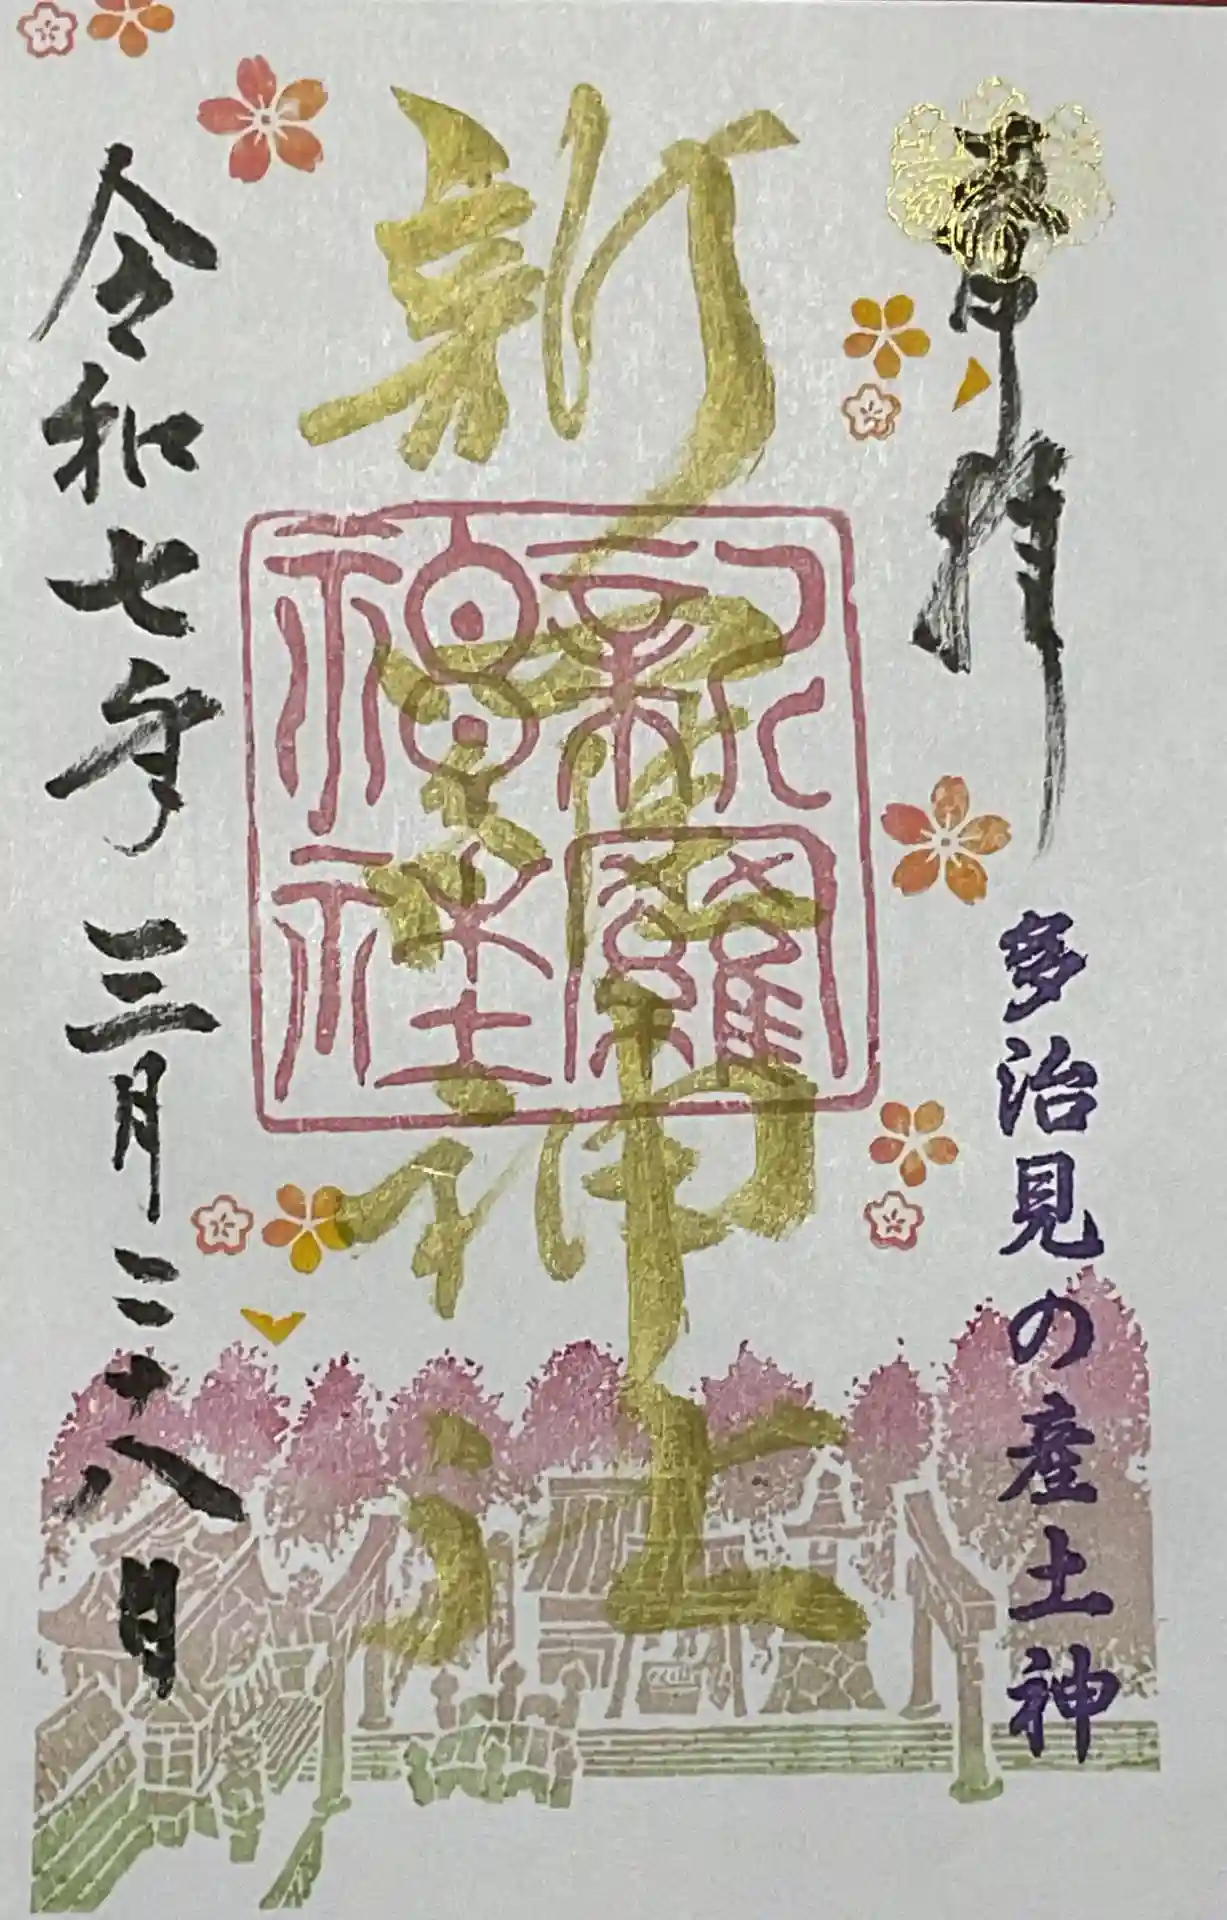 奉拝
多治見の産土神
新羅神社
新羅
神社
令和七年三月二十八日